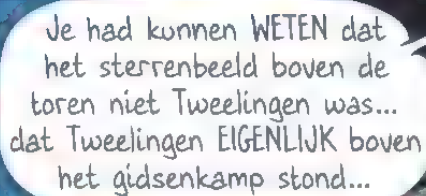 Je had kunnen WETEN dat
het sterrenbeeld boven de
toren niet Tweelingen was...
dat Tweelingen EIGENLIJK boven
het gidsenkamp stond...